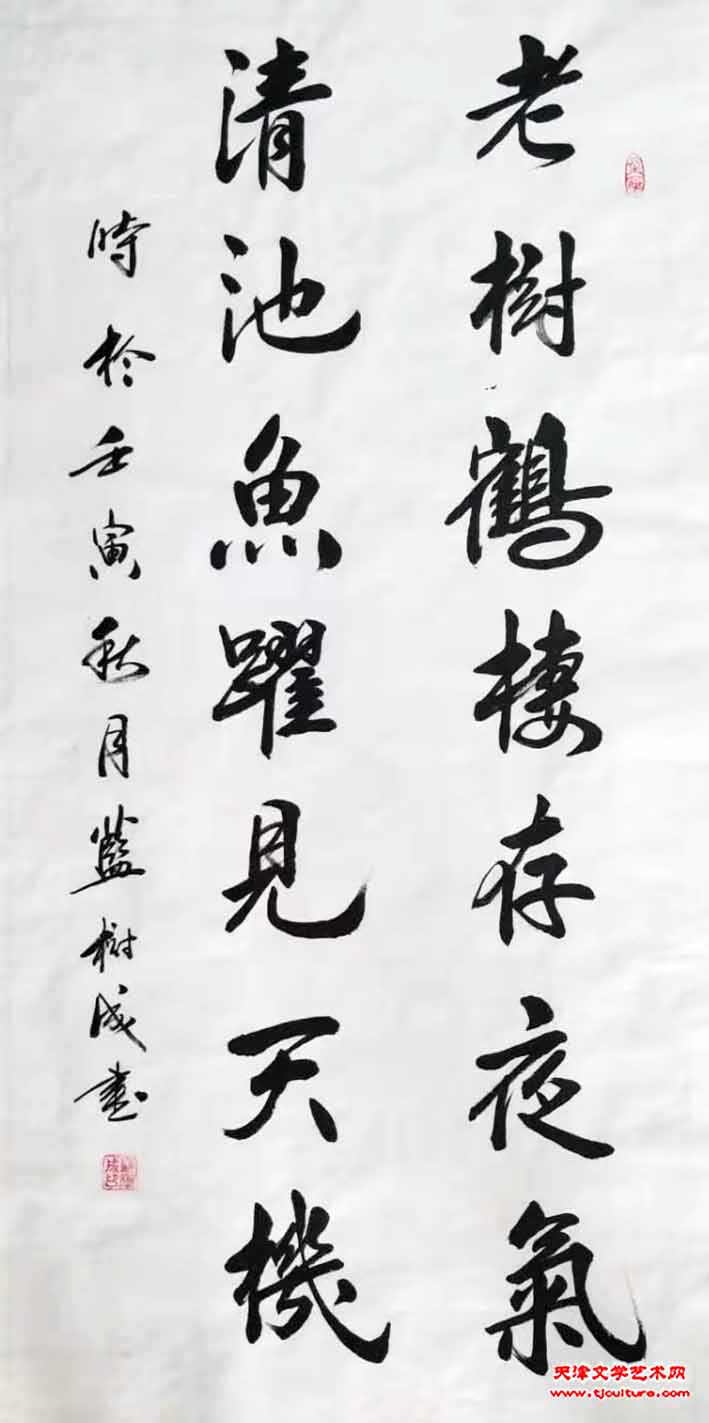 老樹鶴棲存夜氣
清池魚躍見天機
時於壬寅秋月藍樹成書
天津文学艺术网
www.tjculture.com